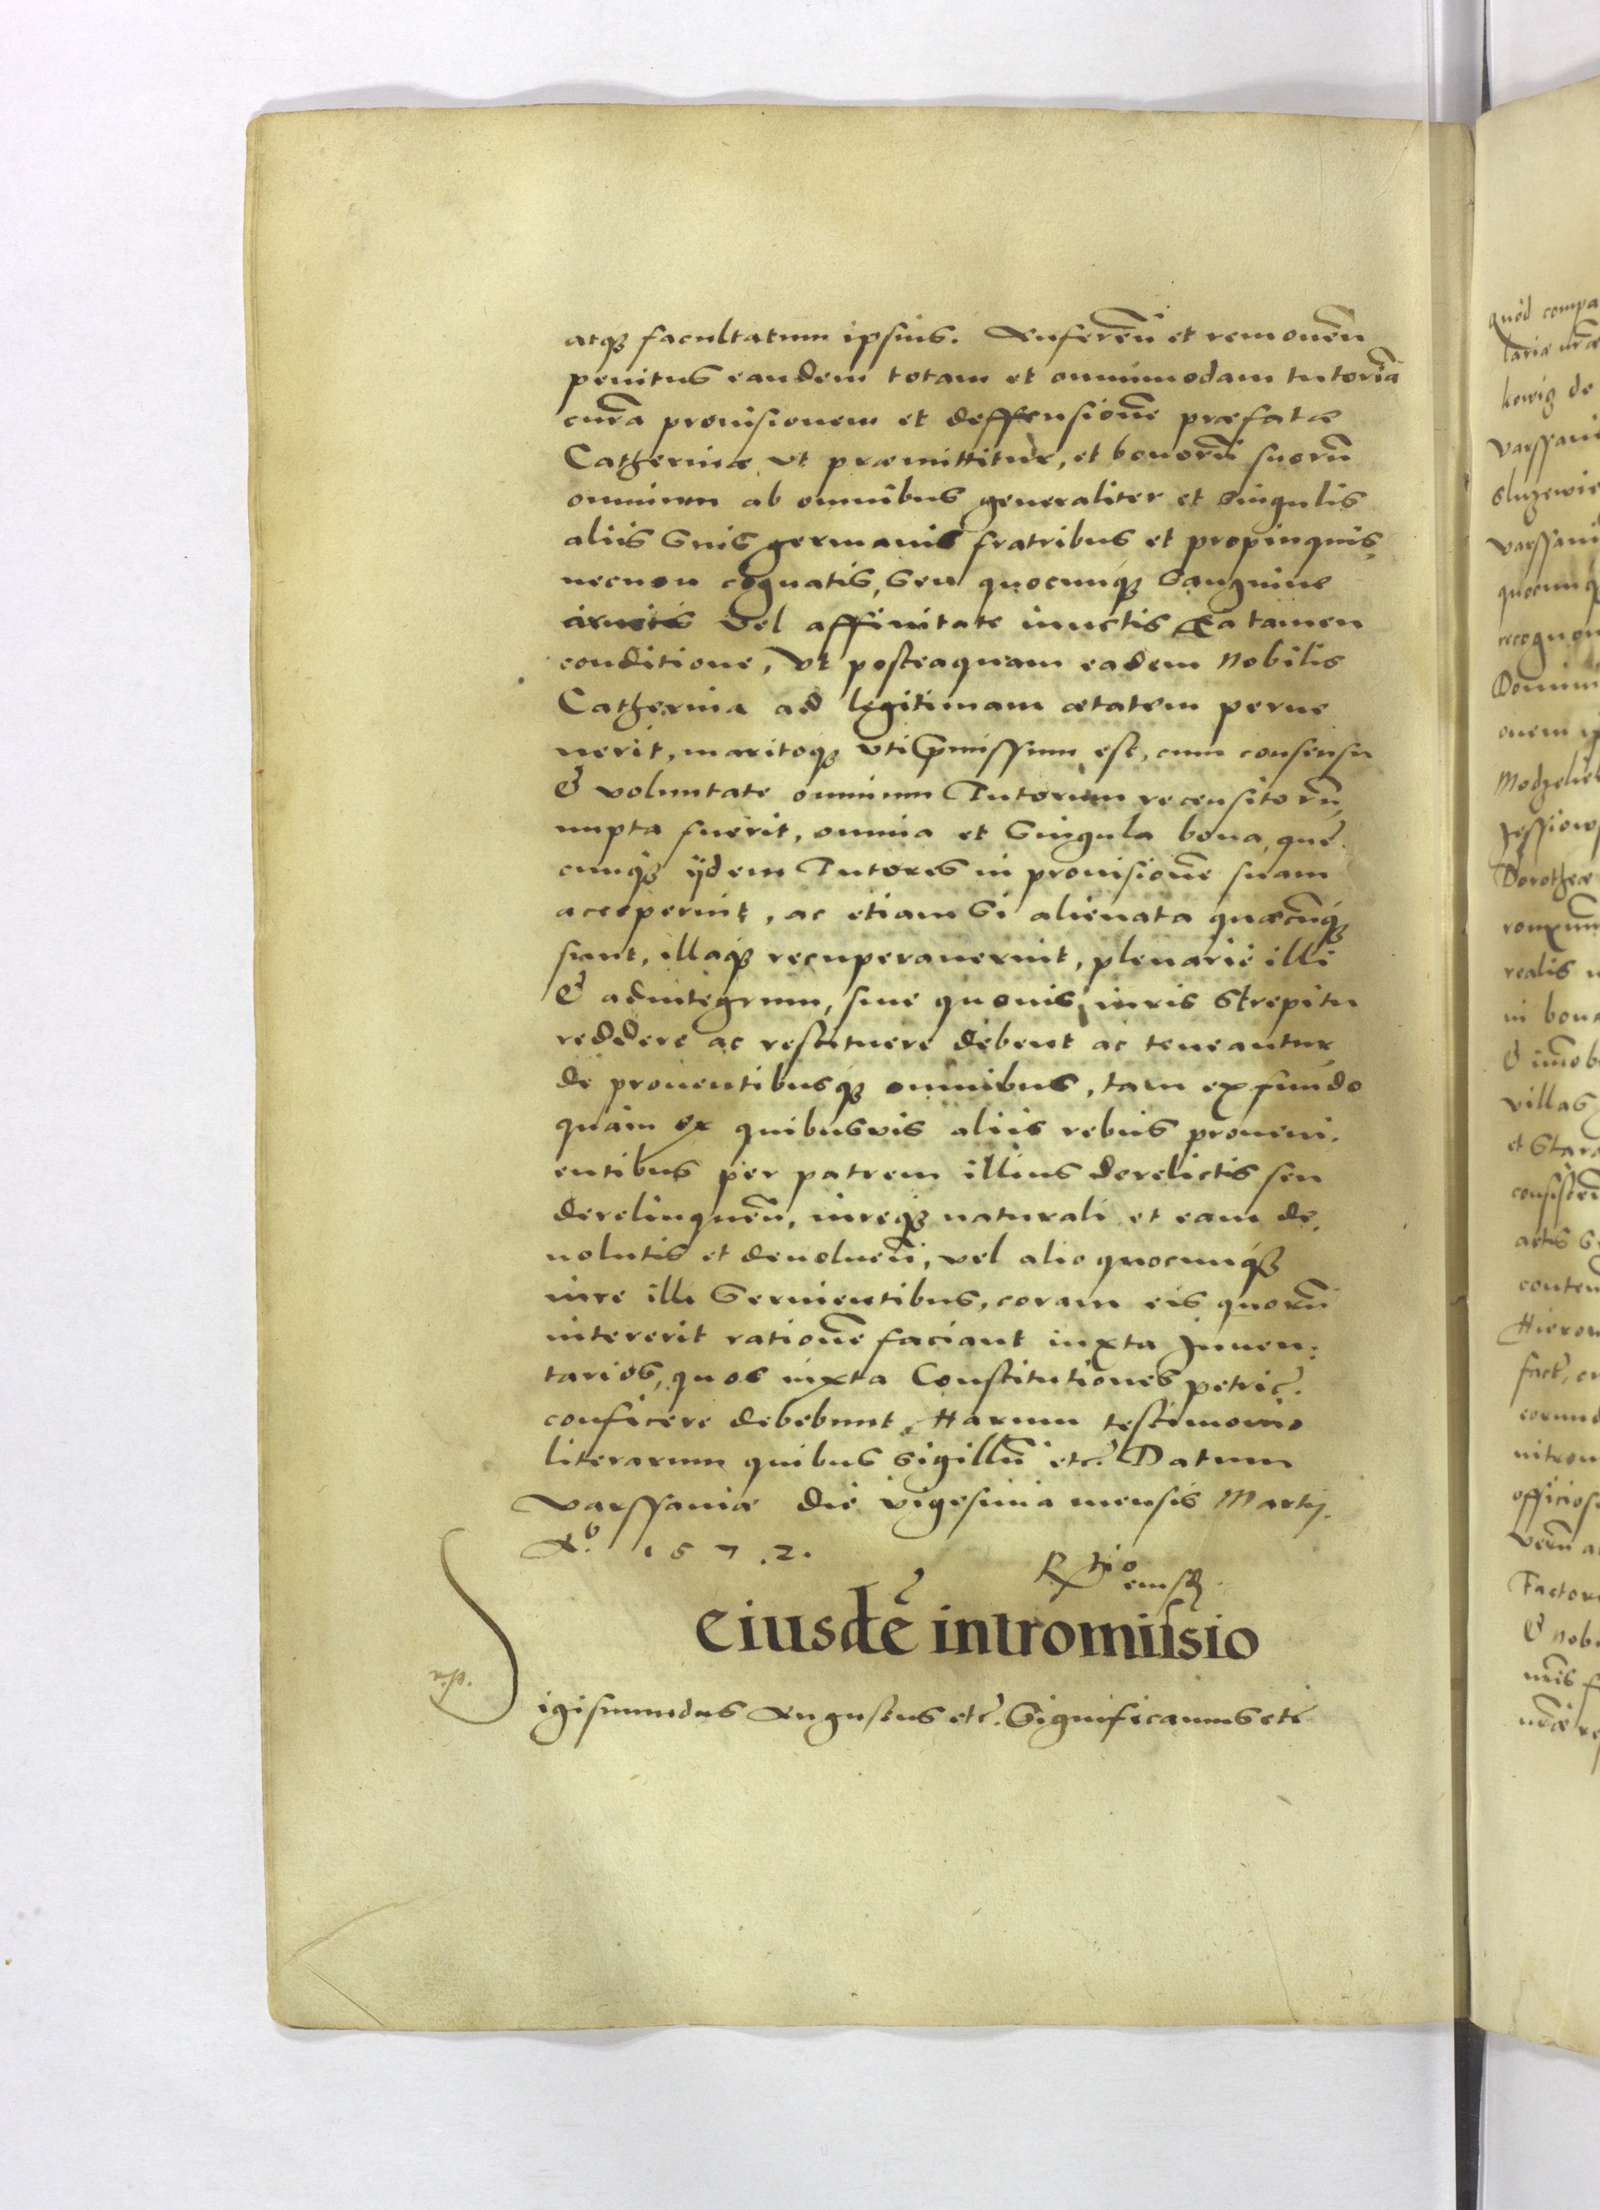 atq₃ facultatum ipsius. Auferen̄ et remouen̄
penitus eandem totam et omnimodam tutoriā
curā prouisionem et deffensionē præfatæ
Catherinæ ut præmittitur, et bonorū suorū
omnium ab omnibus generaliter et singulis
aliis suis germanis fratribus et propinquis,
necnon cognatis, seu quocunq₃ sanguine
vel affinitate iunctis Ea tamen
conditione, ut posteaquam eadem Nobilis
Catherina ad legitimam ætatem perue
nerit, maritoq₃ uti p̄missum est, cum consensu
& voluntate omnium Tutorum recensitorū,
nupta fuerit, omnia et singula bona, que
cunq₃ ijdem Tutores in prouisionē suam
acceperint, ac etiam si alienata quæcūq₃
sunt, illaq₃ recuperauerint, plenarie illi
& adintegrum, siue quouis iuris strepitu
reddere ac restituere debent ac teneantur
de prouentibusq₃ omnibus, tam ex fundo
quàm ex quibusvis aliis rebus proueni.
entibus per patrem illius derelictis seu
derelinquen̄, iureq₃ naturali et eam de
uolutis et deuoluen̄, vel alio quocunq₃
iure illi seruientibus, coram eis quorū
intererit rationē faciant iuxta Inuen:
tarios, quos iuxta Constitutiones petric̄.
conficere debebunt, Harum testimonio
literarum quibus sigillū etc̄. Datum
Varssaviæ die vigesima mensis Martij.
Aᵒ. 1572.
R tio
eiusdē intromissio
Sigismundus Augustus etc̄. Significamus etc̄
quòd compa
lariæ nr̄æ
kowig de
Varssavi
Sluzewie
Varssavi
quocunq₃
recognou
Domini
onem
Modzelie
Dorotheæ
realis
in bon
& im̄ob
villas
et Star
consisten̄
artis
conten
Hieron
fact
eorund
officios
Verū a
Factor
& nobi